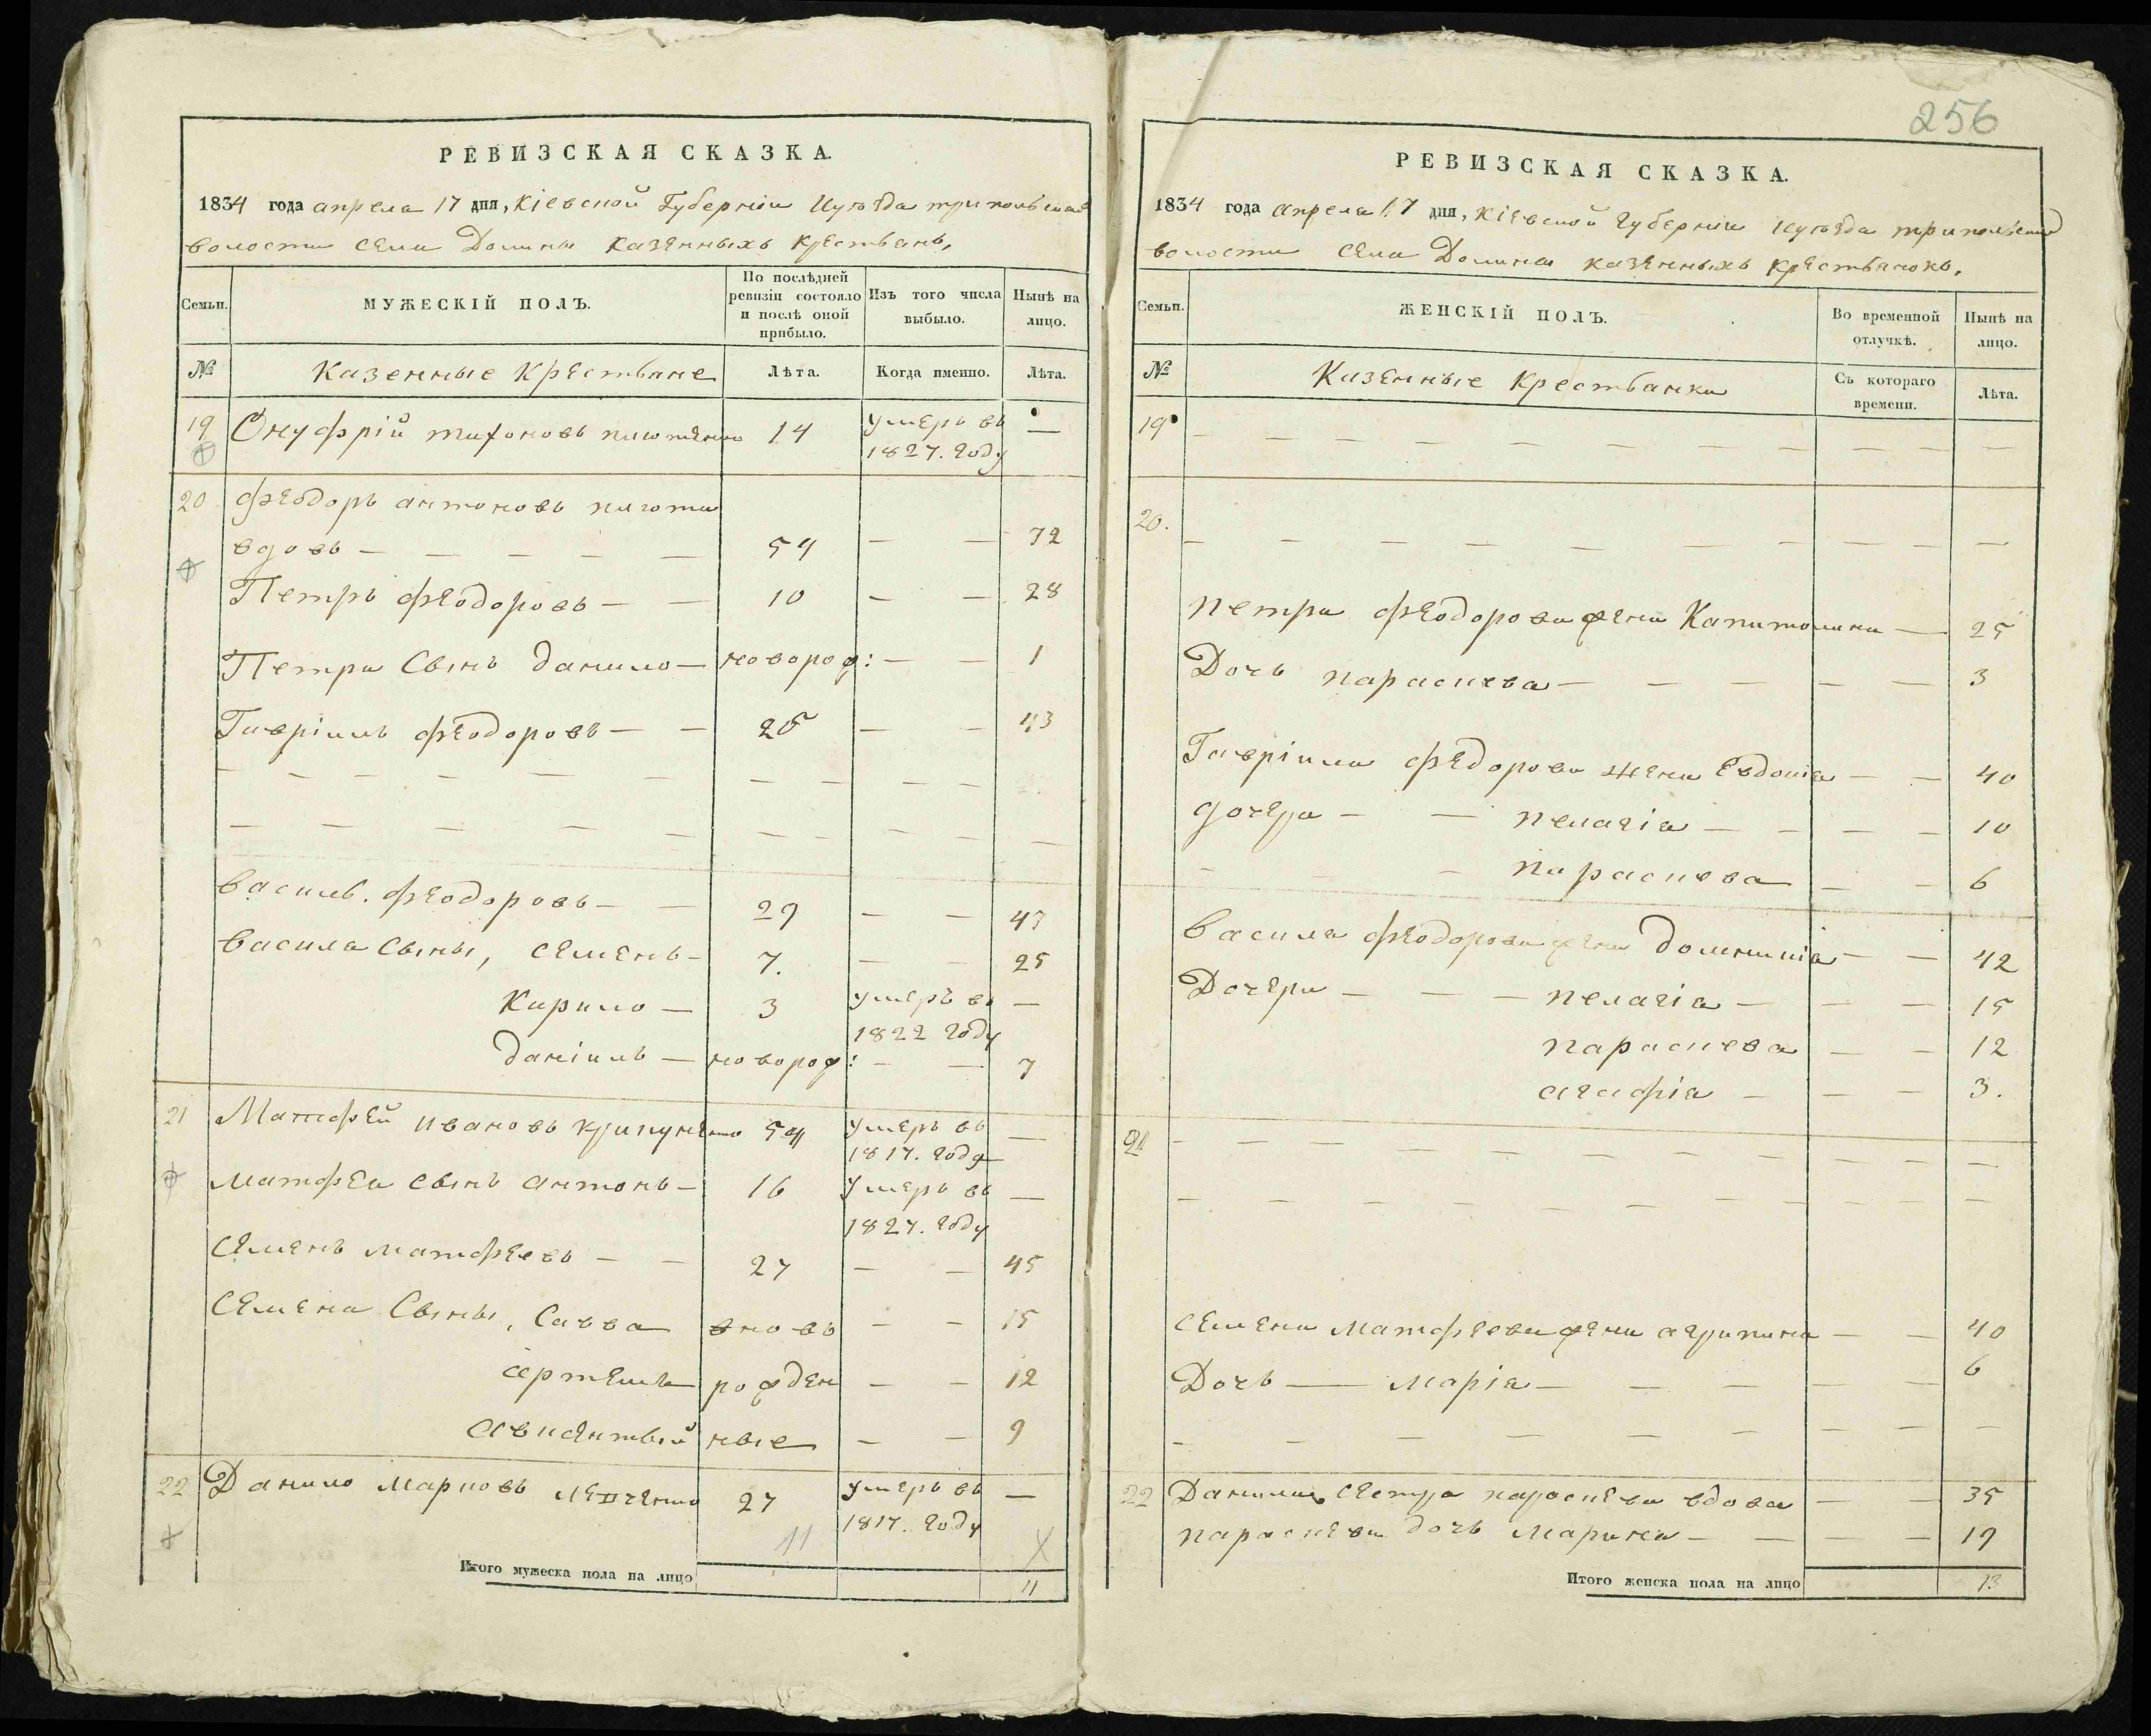 256
РЕВИЗСКАЯ СКАЗКА.
1834 года апреля 17 дня, Кіевской Губерніи И уезда трипольской
волости села Долины казенныхъ крестьянъ,
Семьи.
МУЖЕСКІЙ ПОЛЪ.
По послѣдней ревизіи состояло и послѣ оной прибыло.
Изъ того числа выбыло.
Нынѣ на лицо.
№ Казенные Крестьяне Лѣта. Когда именно. Лѣта.
19 Онуфрій тихоновъ 14 умеръ въ —
1827. году
20 феодоръ антоновъ
вдовъ — — — — — 54 — — 72
Петръ феодоровъ — — 10 — — 28
Петра Сынъ данило — новорож: — — 1
Гавріилъ феодоровъ — — 25 — — 43
василь. феодоровъ — — 29 — — 47
василя Сыны, семенъ — 7. — — 25
Кирило — 3 умеръ въ —
1822 году
даніилъ — новорож: — — 7
21 Матфей ивановъ 54 умеръ въ —
1817. года
матфея сынъ антонъ — 16 умеръ въ —
1827. году
Семенъ матфеевъ — — 27 — — 45
Семена Сыны, Савва вновь — — 15
артемъ рожден — — 12
авксентый ные — — 9
22 Данило марковъ 27 умеръ въ —
1817. году
11 X
Итого мужеска пола на лицо 11
РЕВИЗСКАЯ СКАЗКА.
1834 года апреля 17 дня, Кіевской губерніи И уезда трипольской
волости села Долины казенныхъ крестьянокъ.
Семьи.
ЖЕНСКІЙ ПОЛЪ.
Во временной отлучкѣ.
Нынѣ на лицо.
№ Казенные Крестьянки Съ котораго времени. Лѣта.
19 — — — — — — — — — —
20. — — — — — — — — — —
петра феодорова жена Капитолина — 25
Дочь параскева — — — — — 3
Гавріила федорова жена Евдокія — — 40
дочера — — пелагія — — — — 10
— — — параскева — — 6
Василя феодорова жена домникія — — 42
Дочери — — — пелагія — — — 15
параскева — — 12
агафія — — — 3.
21 — — — — — — — — — —
семена матфеева жена агрипина — — 40
Дочь — марія — — — — — 6
22 Данила сестра параскева вдова — — 35
параскеви дочь марина — — — — 19
Итого женска пола на лицо 13